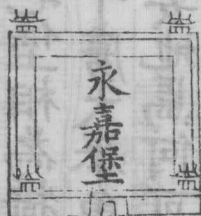 永嘉堡